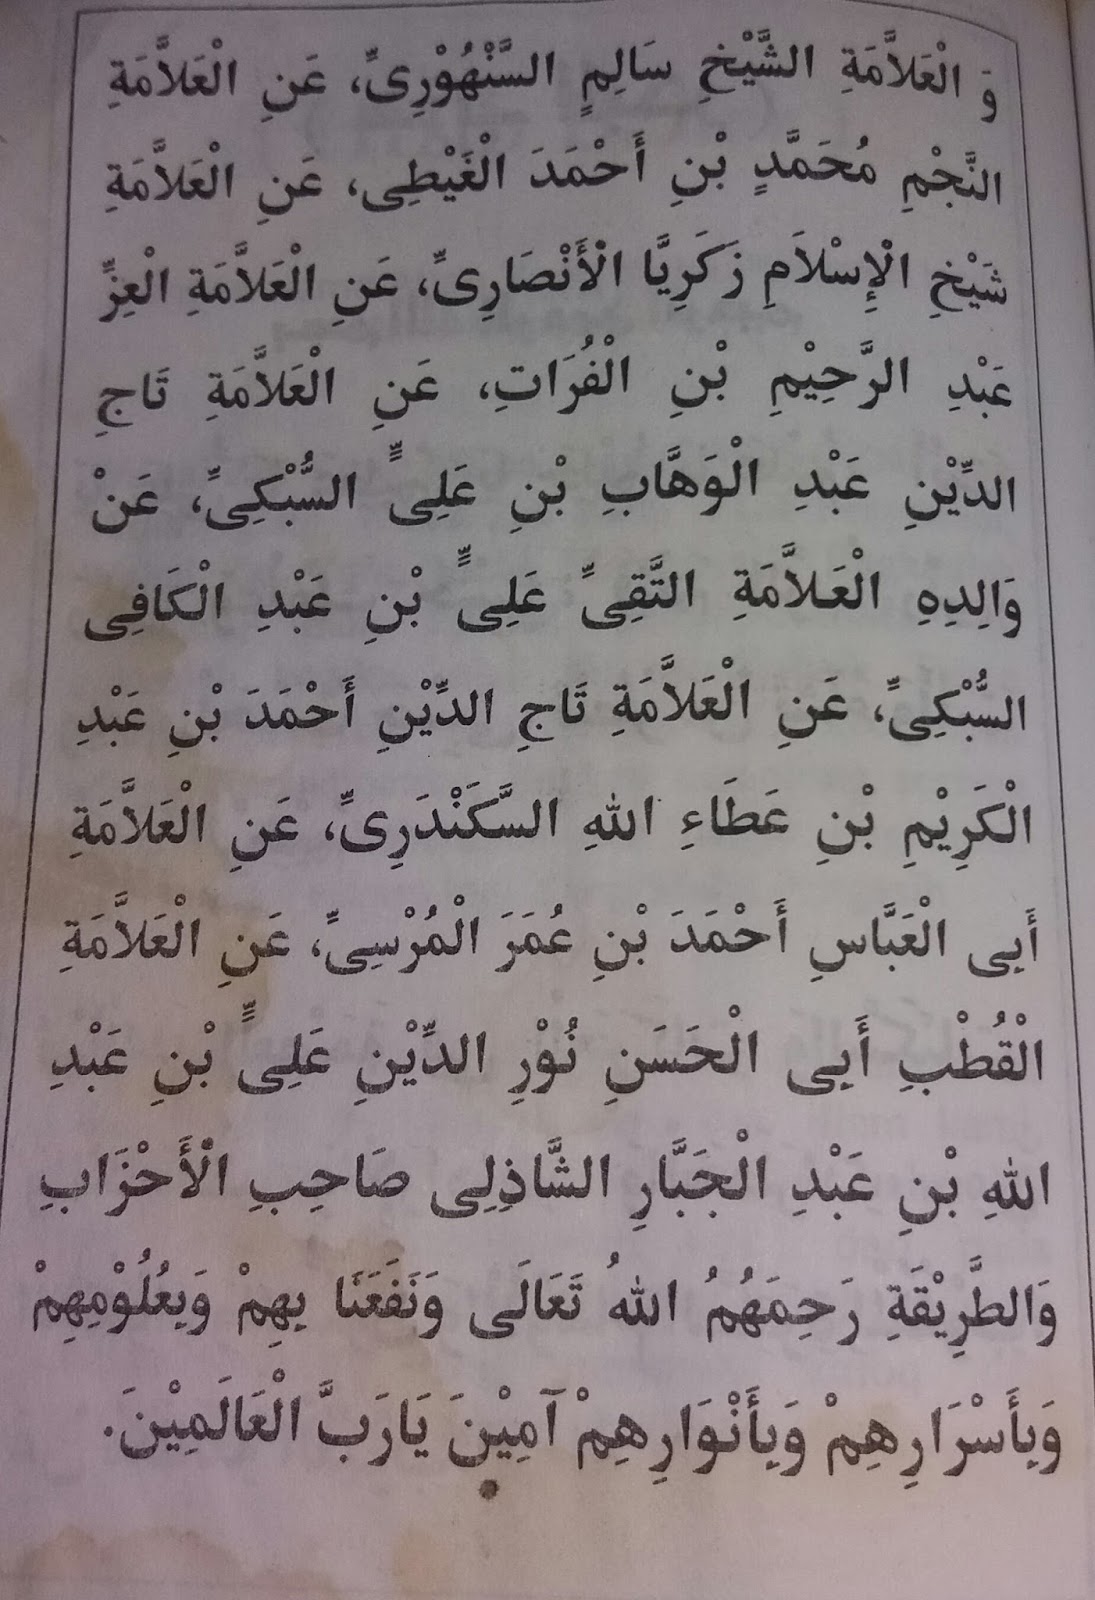 وَ الْعَلاَّمَةِ الشَّيْخِ سَالِمٍ السَّنْهُوْرِىِّ، عَنِ الْعَلاَّمَةِ
النَّجْمِ مُحَمَّدٍ بْنِ أَحْمَدَ الْغَيْطِى، عَنِ الْعَلاَّمَةِ
شَيْخِ الْإِسْلاَمِ زَكَرِيَّا الْأَنْصَارِىِّ، عَنِ الْعَلاَّمَةِ الْعِزِّ
عَبْدِ الرَّحِيْمِ بْنِ الْفُرَاتِ، عَنِ الْعَلاَّمَةِ تَاجِ
الدِّيْنِ عَبْدِ الْوَهَّابِ بْنِ عَلِىٍّ السُّبْكِىِّ، عَنْ
وَالِدِهِ الْعَلاَّمَةِ التَّقِىِّ عَلِىٍّ بْنِ عَبْدِ الْكَافِى
السُّبْكِىِّ، عَنِ الْعَلاَّمَةِ تَاجِ الدِّيْنِ أَحْمَدَ بْنِ عَبْدِ
الْكَرِيْمِ بْنِ عَطَاءِ اللهِ السَّكَنْدَرِىِّ، عَنِ الْعَلاَّمَةِ
أَبِى الْعَبَّاسِ أَحْمَدَ بْنِ عُمَرَ الْمُرْسِىِّ، عَنِ الْعَلاَّمَةِ
الْقُطْبِ أَبِى الْحَسَنِ نُوْرِ الدِّيْنِ عَلِىٍّ بْنِ عَبْدِ
اللهِ بْنِ عَبْدِ الْجَبَّارِ الشَّاذِلِى صَاحِبِ الْأَحْزَابِ
وَالطَّرِيْقَةِ رَحِمَهُمُ اللهُ تَعَالَى وَنَفَعَنَا بِهِمْ وَبِعُلُوْمِهِمْ
وَبِأَسْرَارِهِمْ وَبِأَنْوَارِهِمْ آمِيْنَ يَارَبَّ الْعَالَمِيْنَ.